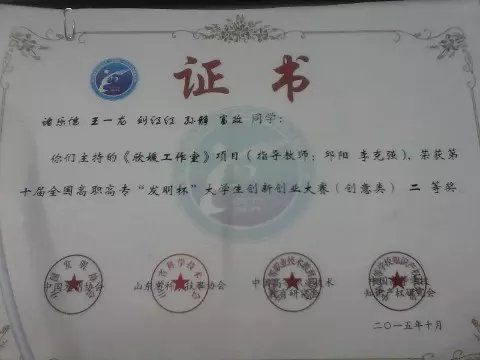 证 书
诸乐倍 王一龙 刘红红 孙静 富政 同学：
你们主持的《欣媛工作室》项目（指导教师：邱阳 李克强），荣获第
十届全国高职高专“发明杯”大学生创新创业大赛（创意类） 二 等奖
中国发明协会
山东省科学技术协会
二〇一五年十月